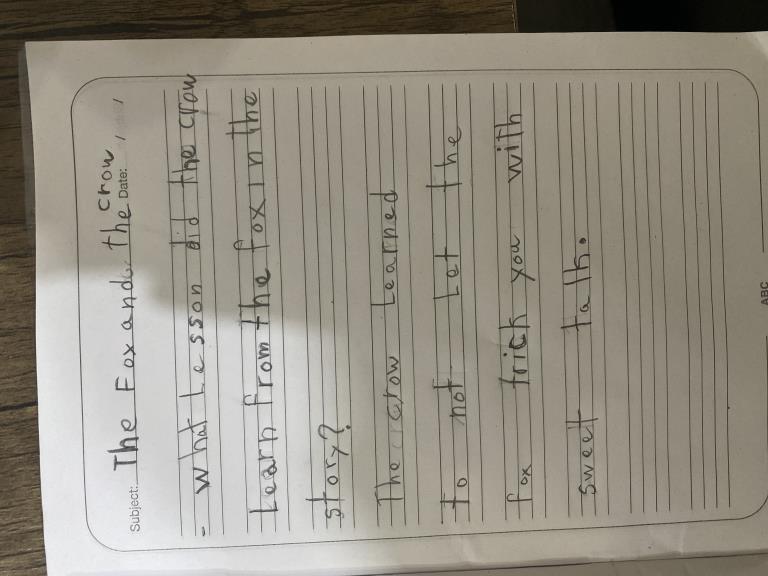 Subject: The Fox and the crow Date: / /
- What Lesson did the crow
Learn from the fox in the
story?
The crow Learned
to not Let the
fox trick you with
sweet talk.
ABC